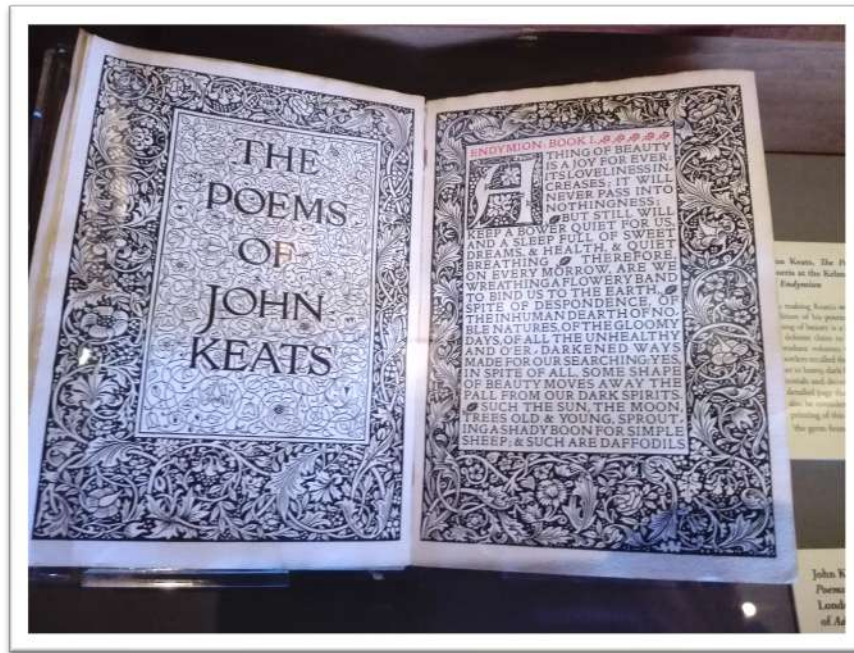 THE
POEMS
OF
JOHN
KEATS
ENDYMION: BOOK I.
A THING OF BEAUTY
IS A JOY FOR EVER:
ITS LOVELINESS IN-
CREASES; IT WILL
NEVER PASS INTO
NOTHINGNESS;
BUT STILL WILL
KEEP A BOWER QUIET FOR US,
AND A SLEEP FULL OF SWEET
DREAMS, & HEALTH, & QUIET
BREATHING. THEREFORE,
ON EVERY MORROW, ARE WE
WREATHING A FLOWERY BAND
TO BIND US TO THE EARTH,
SPITE OF DESPONDENCE, OF
THE INHUMAN DEARTH OF NO-
BLE NATURES, OF THE GLOOMY
DAYS, OF ALL THE UNHEALTHY
AND O'ER-DARKENED WAYS
MADE FOR OUR SEARCHING: YES,
IN SPITE OF ALL, SOME SHAPE
OF BEAUTY MOVES AWAY THE
PALL FROM OUR DARK SPIRITS.
SUCH THE SUN, THE MOON,
TREES OLD & YOUNG, SPROUT-
ING A SHADY BOON FOR SIMPLE
SHEEP; & SUCH ARE DAFFODILS
Keats, The
at the
Endymion
making Keats
of his poems
of beauty is a
John
Poems
of